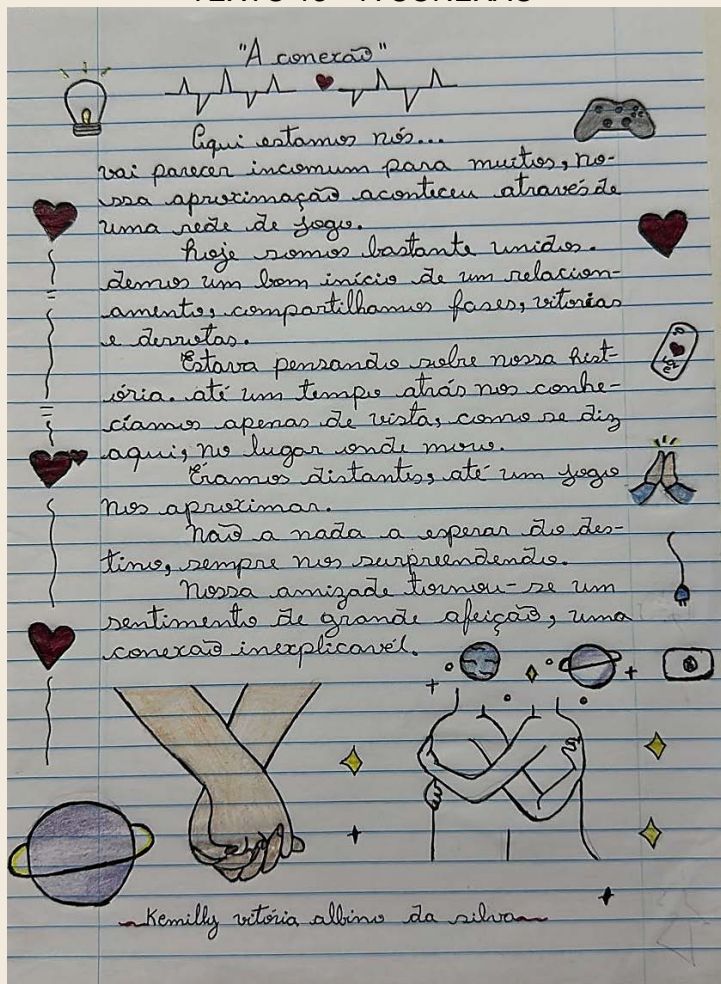 "A conexão"
Aqui estamos nós...
vai parecer incomum para muitos, no-
ssa aproximação aconteceu através de
uma rede de jogo.
hoje somos bastante unidos.
demos um bom início de um relacion-
amento, compartilhamos fases, vitorias
e derrotas.
Estava pensando sobre nossa hist-
ória. até um tempo atrás nos conhe-
ciamos apenas de vista, como se diz
aqui, no lugar onde moro.
Éramos distantes, até um jogo
nos aproximar.
Não a nada a esperar do des-
tino, sempre nos surpreendendo.
Nossa amizade tornou-se um
sentimento de grande afeição, uma
conexão inexplicavél.
Kemilly vitória albino da silva